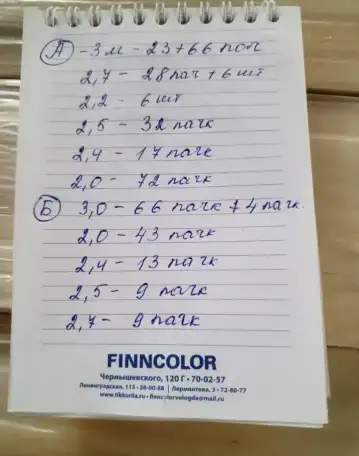 А - 3м - 23+66 пач
2,7 - 28пач + 6 шт
2,2 - 6 шт
2,5 - 32 пачк
2,4 - 17 пачк
2,0 - 72 пачк
Б 3,0 - 66 пачк + 4 пачк.
2,0 - 43 пачк
2,4 - 13 пачк
2,5 - 9 пачк
2,7 - 9 пачк
FINNCOLOR
Чернышевского, 120 Г • 70-02-57
Ленинградская, 115 • 58-00-88 | Лермонтова, 3 • 72-80-77
www.tikkurila.ru • finncolorvologda@mail.ru